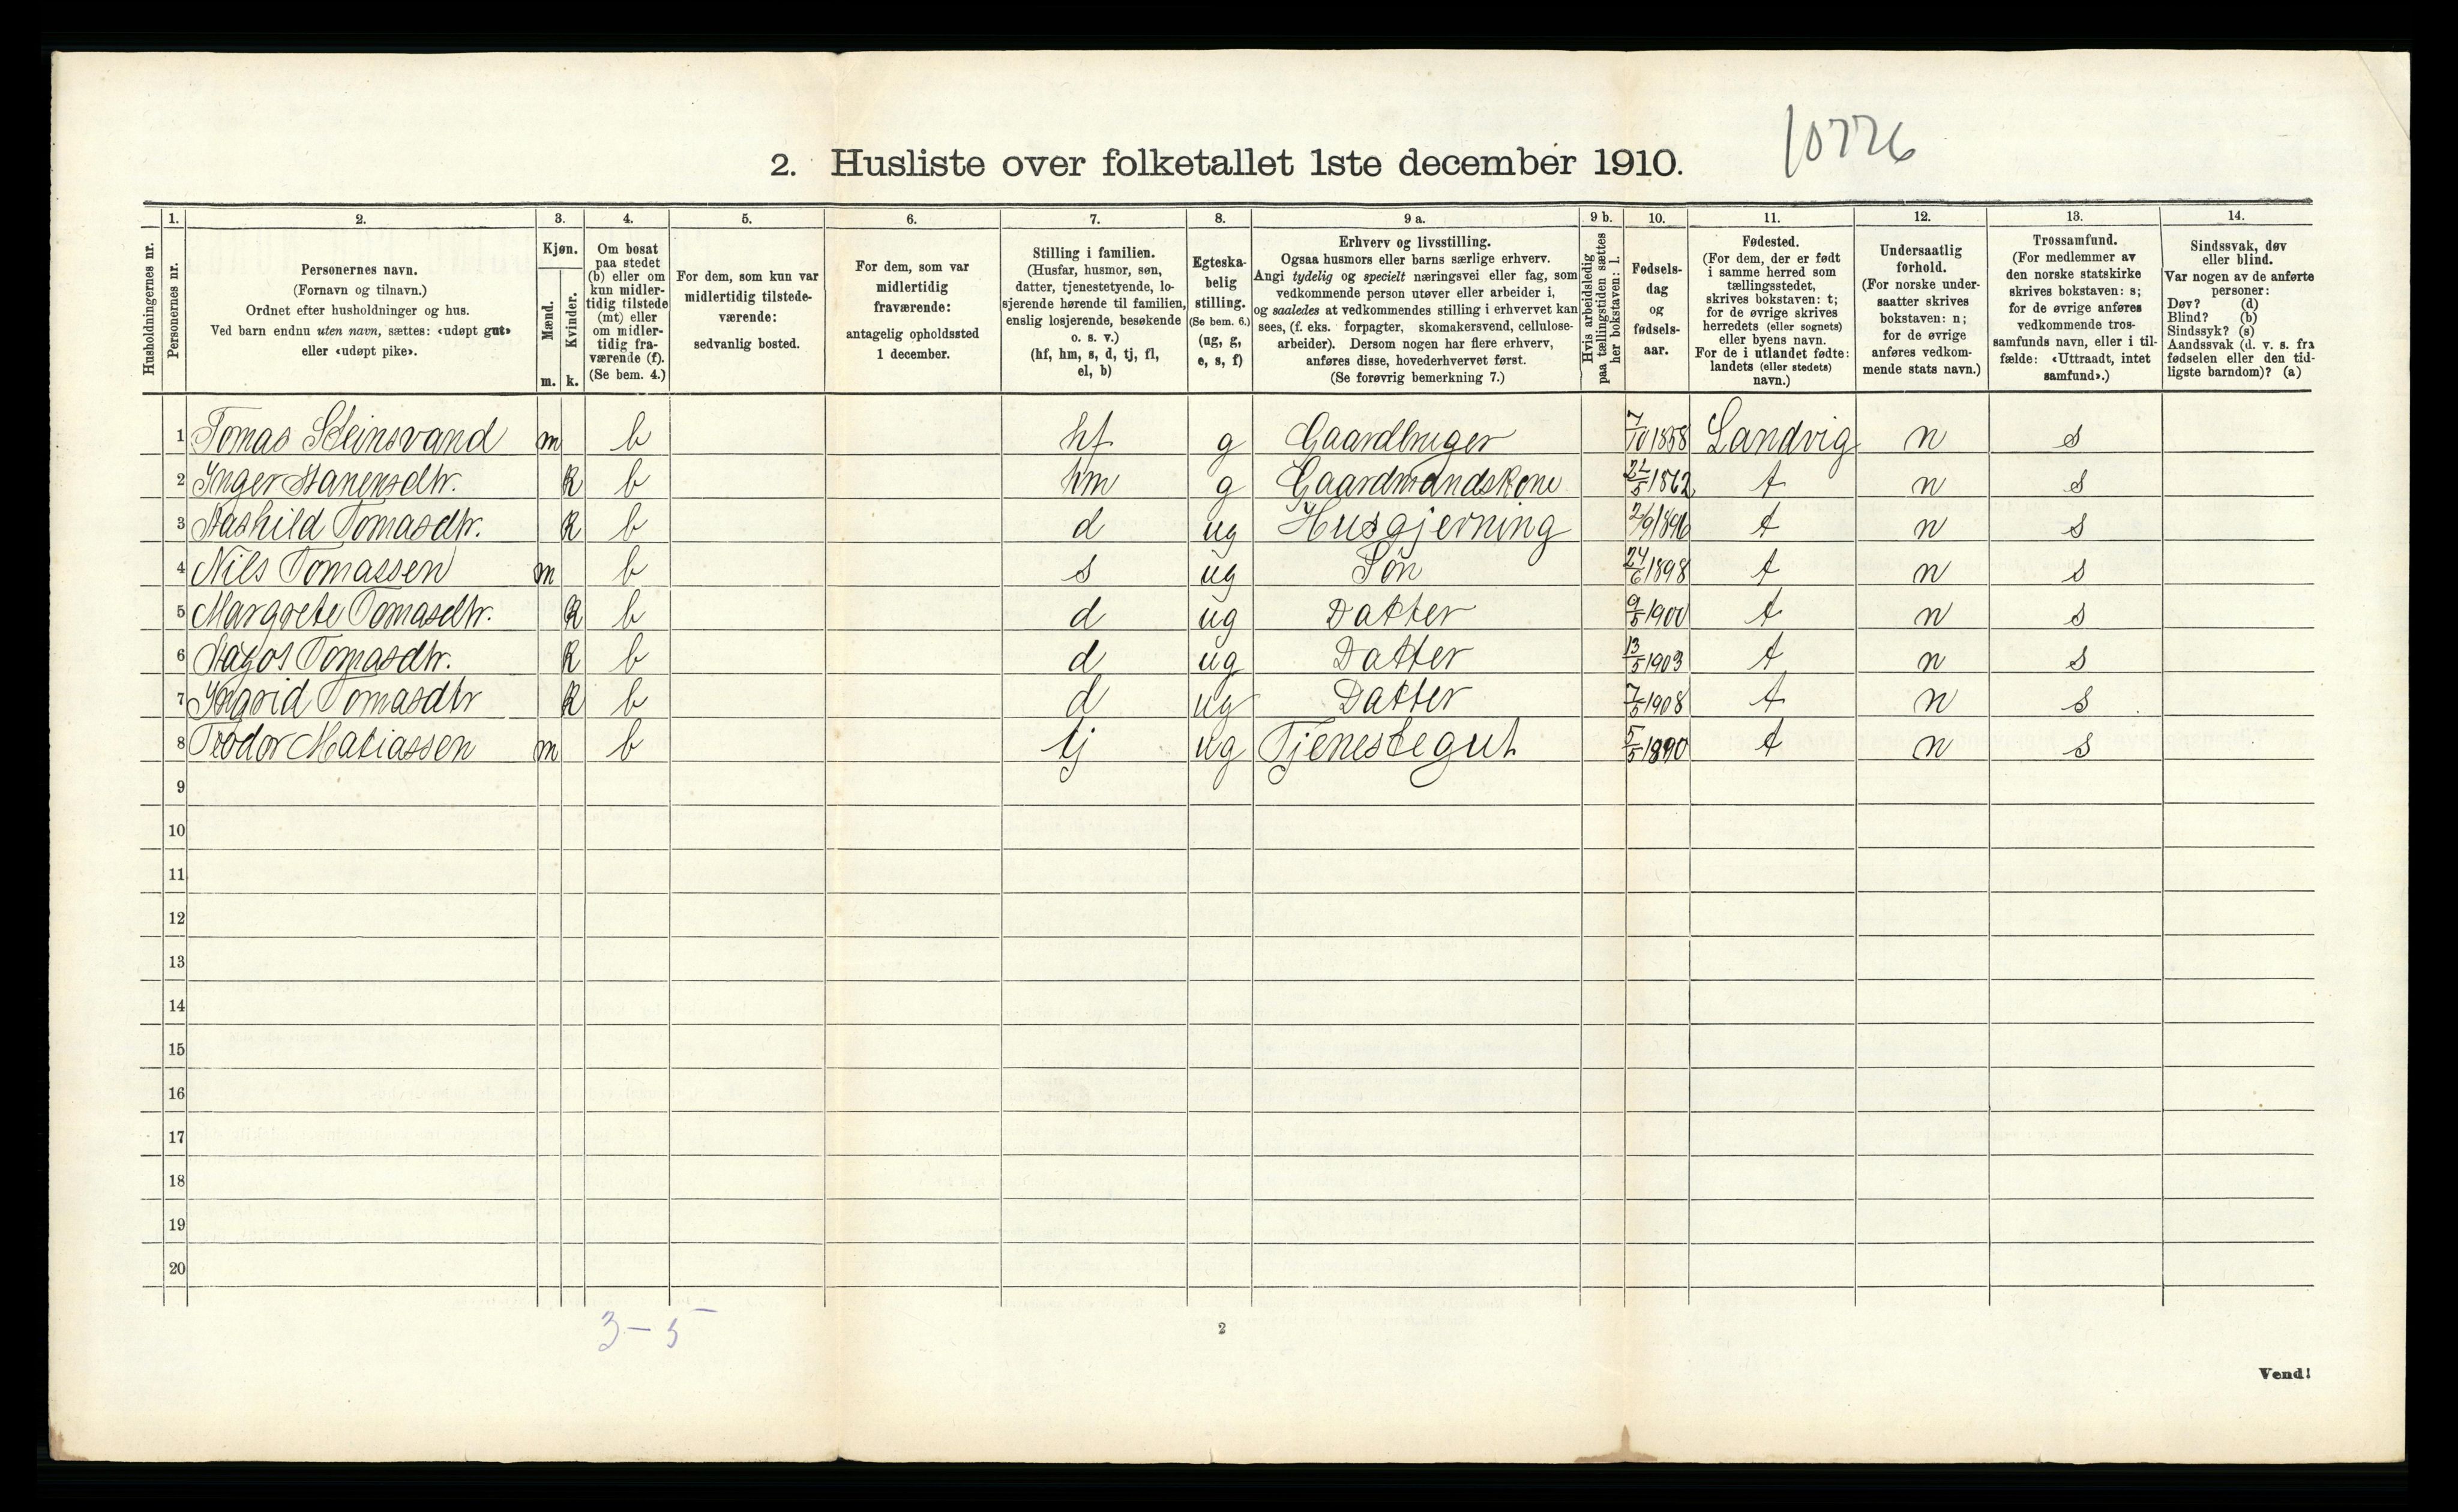 10776
2. Husliste over folketallet 1ste december 1910.
Husholdningernes nr.
1. Personernes nr.
2. Personernes navn. (Fornavn og tilnavn.) Ordnet efter husholdninger og hus. Ved barn endnu uten navn, sættes: «udøpt gut» eller «udøpt pike».
3. Kjøn. Mænd. m. Kvinder. k.
4. Om bosat paa stedet (b) eller om kun midlertidig tilstede (mt) eller om midlertidig fraværende (f). (Se bem. 4.)
5. For dem, som kun var midlertidig tilstedeværende: sedvanlig bosted.
6. For dem, som var midlertidig fraværende: antagelig opholdssted 1 december.
7. Stilling i familien. (Husfar, husmor, søn, datter, tjenestetyende, losjerende hørende til familien, enslig losjerende, besøkende o. s. v.) (hf, hm, s, d, tj, fl, el, b)
8. Egteskabelig stilling. (Se bem. 6.) (ug, g, e, s, f)
9 a. Erhverv og livsstilling. Ogsaa husmors eller barns særlige erhverv. Angi tydelig og specielt næringsvei eller fag, som vedkommende person utøver eller arbeider i, og saaledes at vedkommendes stilling i erhvervet kan sees, (f. eks. forpagter, skomakersvend, cellulosearbeider). Dersom nogen har flere erhverv, anføres disse, hovederhvervet først. (Se forøvrig bemerkning 7.)
9 b. Hvis arbeidsledig paa tællingstiden sættes her bokstaven: l.
10. Fødselsdag og fødselsaar.
11. Fødested. (For dem, der er født i samme herred som tællingsstedet, skrives bokstaven: t; for de øvrige skrives herredets (eller sognets) eller byens navn. For de i utlandet fødte: landets (eller stedets) navn.)
12. Undersaatlig forhold. (For norske undersaatter skrives bokstaven: n; for de øvrige anføres vedkommende stats navn.)
13. Trossamfund. (For medlemmer av den norske statskirke skrives bokstaven: s; for de øvrige anføres vedkommende trossamfunds navn, eller i tilfælde: «Uttraadt, intet samfund».)
14. Sindssvak, døv eller blind. Var nogen av de anførte personer: Døv? (d) Blind? (b) Sindssyk? (s) Aandssvak (d. v. s. fra fødselen eller den tidligste barndom)? (a)
1 Tomas Steinsvand m b hf g Gaardbruger 7/10 1858 Landvig n s
2 Inger Hanensdtr. k b hm g Gaardmandskone 1862 t n s
3 Aashild Tomasdtr. k b d ug Husgjerning 2/9 1896 t n s
4 Nils Tomassen m b s ug Søn 24/6 1898 t n s
5 Margrete Tomasdtr. k b d ug Datter 9/5 1900 t n s
6 Tomasdtr. k b d ug Datter 13/5 1903 t n s
7 Ingrid Tomasdtr k b d ug Datter 7/5 1908 t n s
8 Teodor Matiassen m b tj ug Tjenestegut 5/5 1890 t n s
9
10
11
12
13
14
15
16
17
18
19
20
3 – 5
2
Vend!